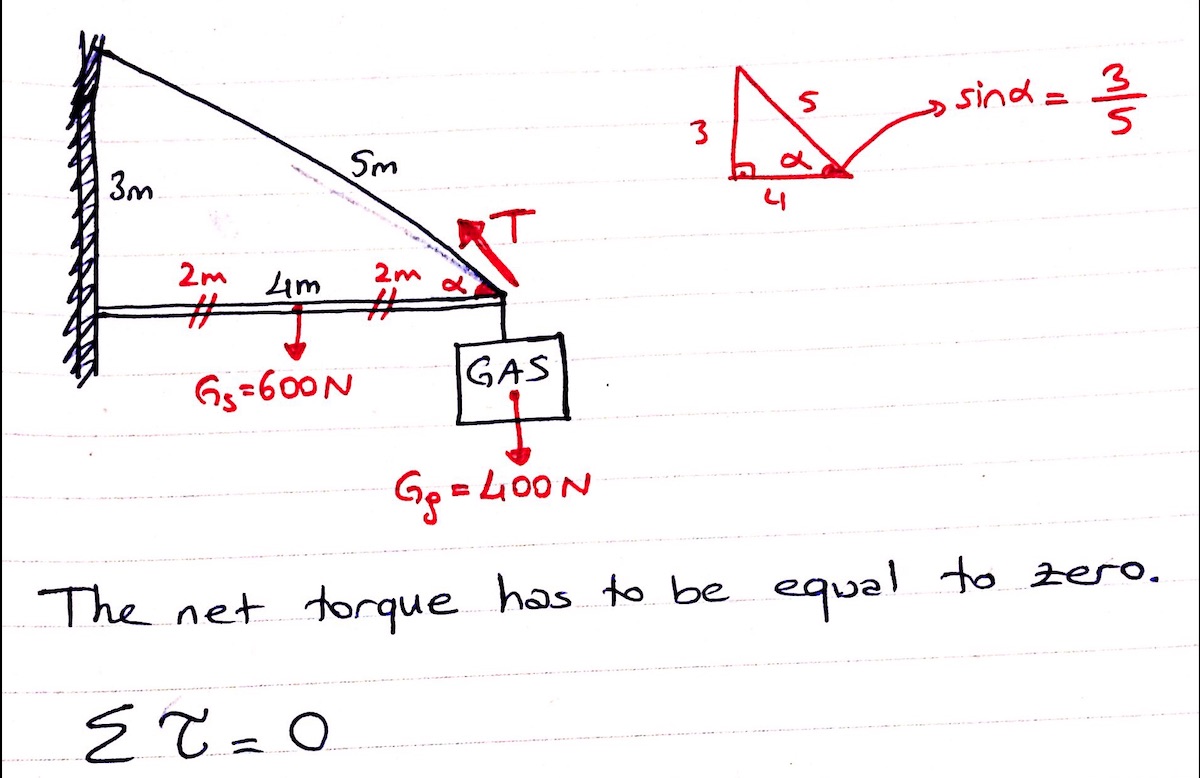 3m
5m
T
2m 4m 2m α
Gs=600N
GAS
Gg=400N
3
5
α
4
sinα = 3/5
The net torque has to be equal to zero.
Στ=0